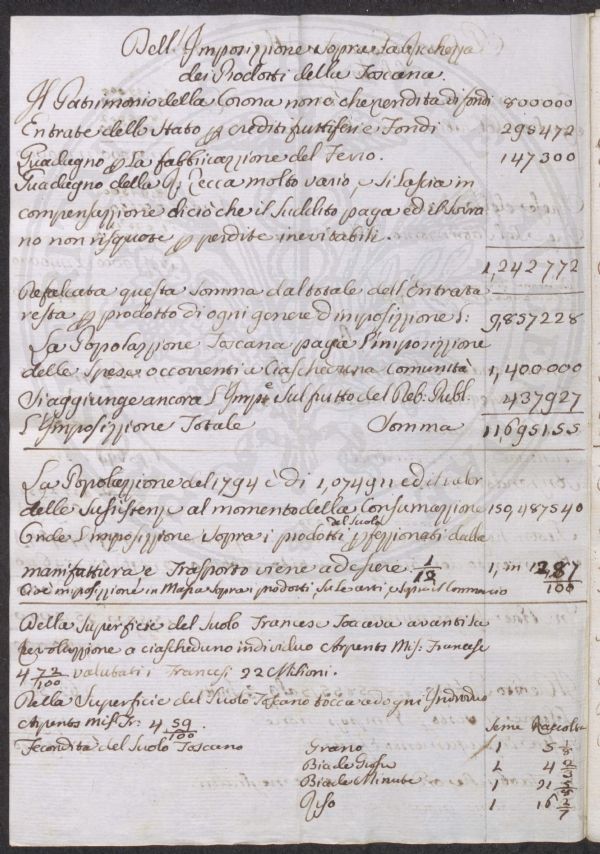 Dell' Imposizzione sopra la Richezza
dei Prodotti della Toscana.
Il Patrimonio della Corona non è che rendita di fondi 800000
Entrate dello Stato p crediti fruttiferi e Fondi 295472
Guadagno p la fabbricazzione del Ferro. 147300
Guadagno della R: Zecca molto vario, e si Lascia in
compensazzione di ciò che il Suddito paga ed il Sovra
no non risquote p perdite inevitabili.
1,242772
Defalcata questa Somma dal totale dell'Entrata
resta p prodotto di ogni genere d'imposizzione L: 9,857228
La Popolazzione Toscana paga l'imposizzione
delle spese occorrenti a ciascheduna Comunità 1,400000
Si aggiunge ancora l'Imp.e sul frutto del Deb: Pubb. 437927
L'Imposizzione Totale Somma 11,695155
La Popolazzione del 1794 è di 1,074911 ed il valor
delle Sussistenze al momento della Consumazzione 150,487540
Onde l'imposizzione sopra i prodotti del Suolo pfezzionati dalla
manifattura e Trasporto viene ad essere 1/12 1, in 12,87/100
Cioè imposizzione in Massa sopra i prodotti, su le arti, e sopra il Commercio
Della Superficie del Suolo Francese toccava avanti la
Revoluzzione a ciascheduno individuo Arpents Mis: Francese
4 72/100 valutati i Francesi 22 Milioni.
Della Superficie del Suolo Toscano tocca ad ogni Individuo
Arpents Mis: Fr: 4 59/100.
Seme Raccolta
Fecondità del Suolo Toscano Grano 1 5
Biade Grosse 1 4
Biade Minute 1 21
Riso 1 16